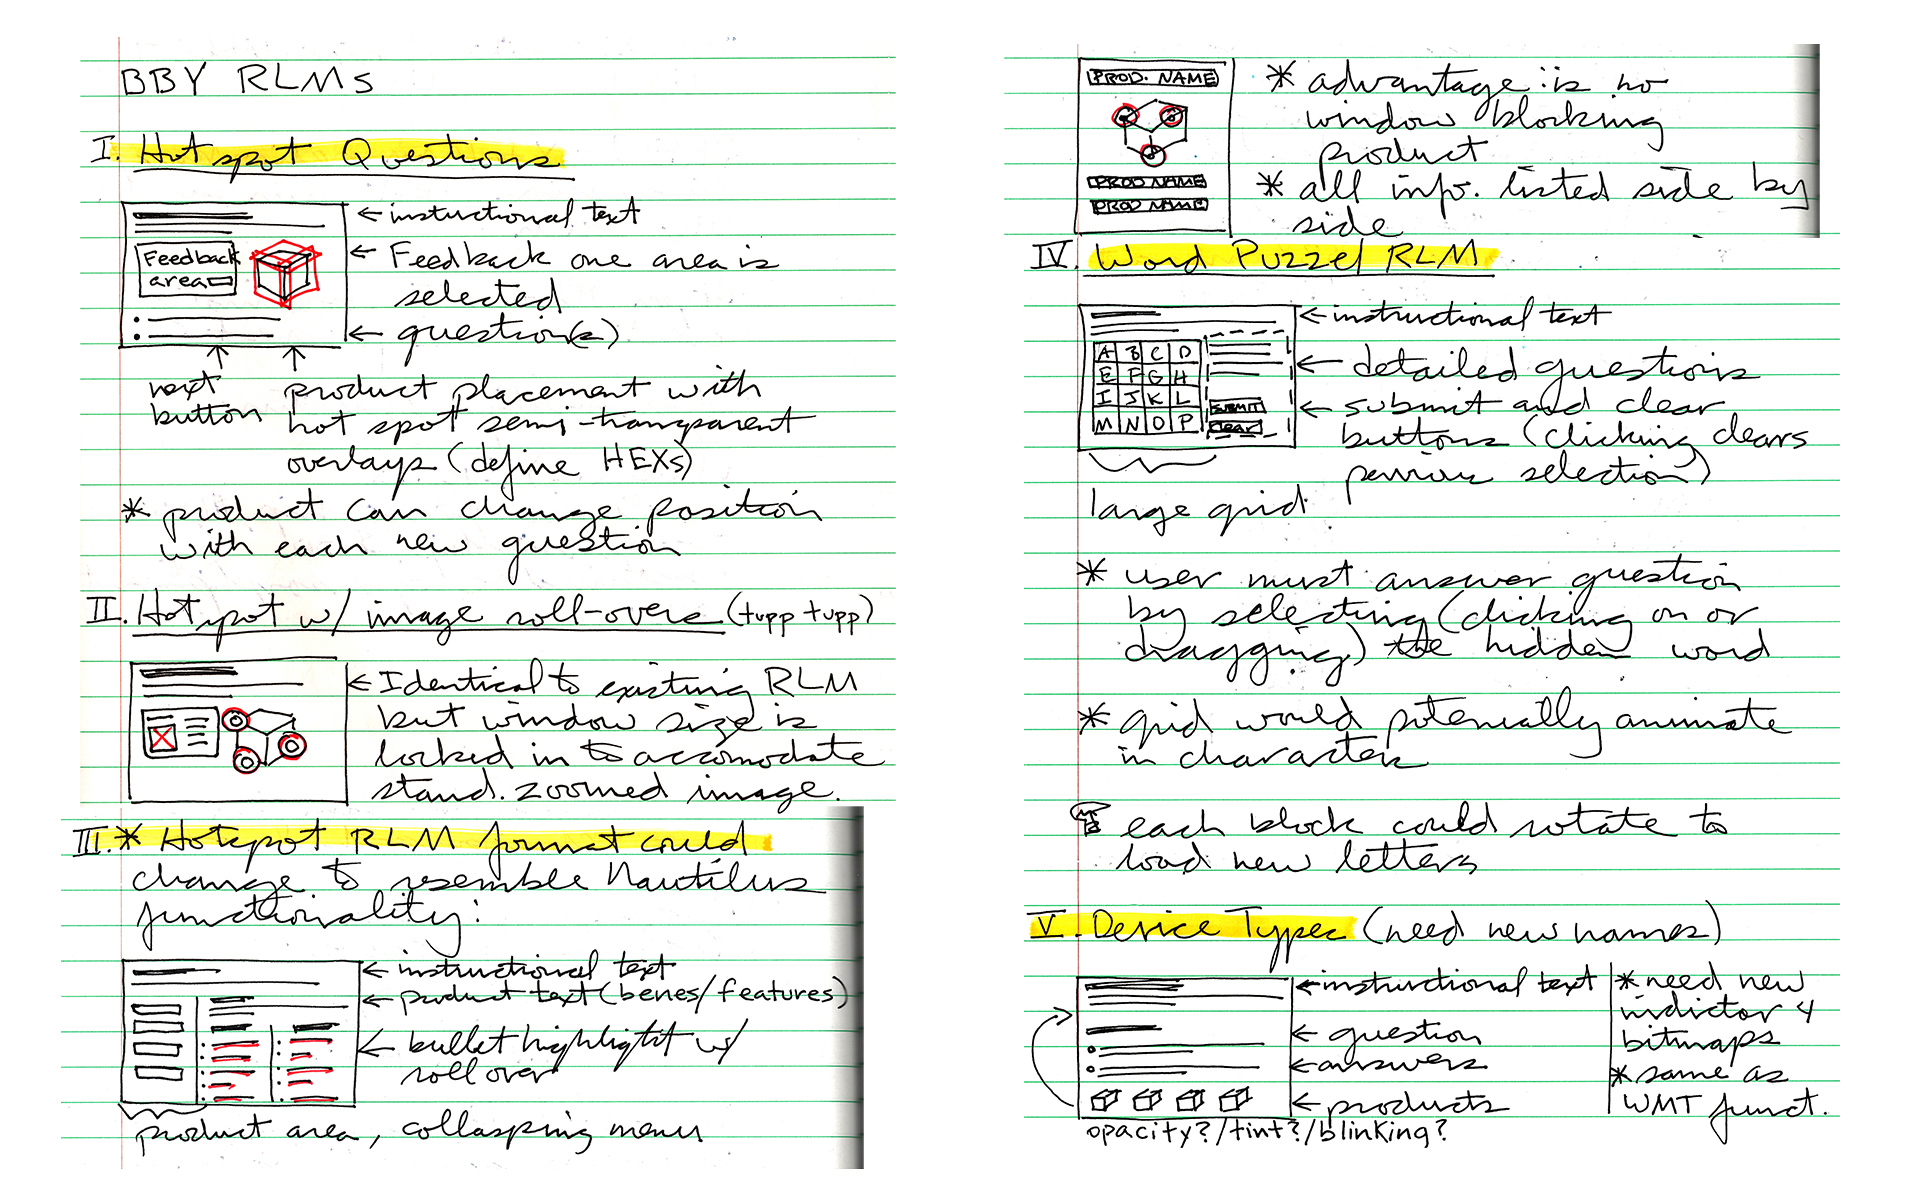 BBY RLMs
I. Hotspot Questions
← instuctional text
Feedback
area
← Feedback one area is
selected
← question(s)
next
button
product placement with
hot spot semi-transparent
overlays (define HEXs)
* product can change position
with each new question
II. Hotspot w/ image roll-overs (tupp tupp)
← Identical to existing RLM
but window size is
locked in to accomodate
stand. zoomed image.
III. * Hotspot RLM format could
change to resemble Nautilus
functionality:
← instructional text
← product text (benes/features)
← bullet highlight w/
roll over
product area, collasping menu
PROD. NAME
PROD NAME
PROD NAME
* advantage is no
window blocking
product
* all info. listed side by
side
IV. Word Puzzel RLM
← instructional text
A B C D
E F G H
I J K L
M N O P
SUBMIT
CLEAR
← detailed questions
← submit and clear
buttons (clicking clears
selection)
large grid
* user must answer question
by selecting (clicking on or
dragging) the hidden word
* grid would potenially animate
in characters
each block could rotate to
load new letters
V. Device Types (need new names)
← instructional text
← question
← answers
← products
opacity?/tint?/blinking?
* need new
indictor 4
bitmaps
* same as
WMT funct.